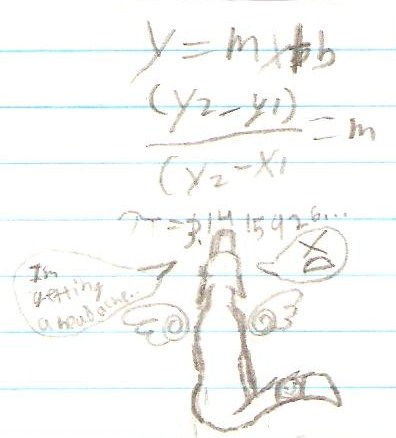 y = mx+b
(y2-y1)
(x2-x1
= m
π = 3.1415926...
I'm getting a headache...
X